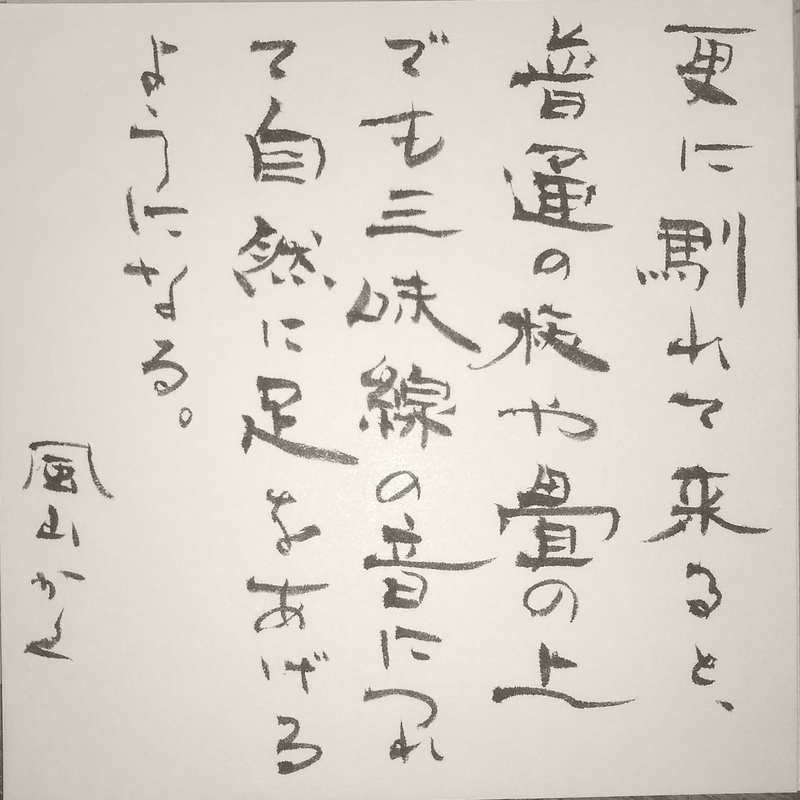 更に馴れて来ると、
普通の板や畳の上
でも三味線の音につれ
て自然に足をあげる
ようになる。
風山かん